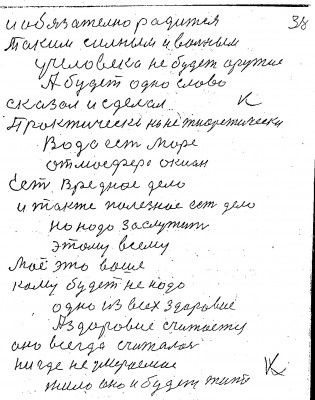 и обязателно радится 38
Таким силным и важным
учеловека не будет оружие
А будет одно слово
сказал и сделал К
Практически но не тиоретически
Вода ест море
атмосфера океан
Ест вредное дело
и также полезное ест дело
но надо заслужит
этому всему
Моё это ваше
кому будет не надо
одно из всех здоровие
Аздоровие считаету
оно всегда считалос
нигде не умераемое К
жило оно и будет жит